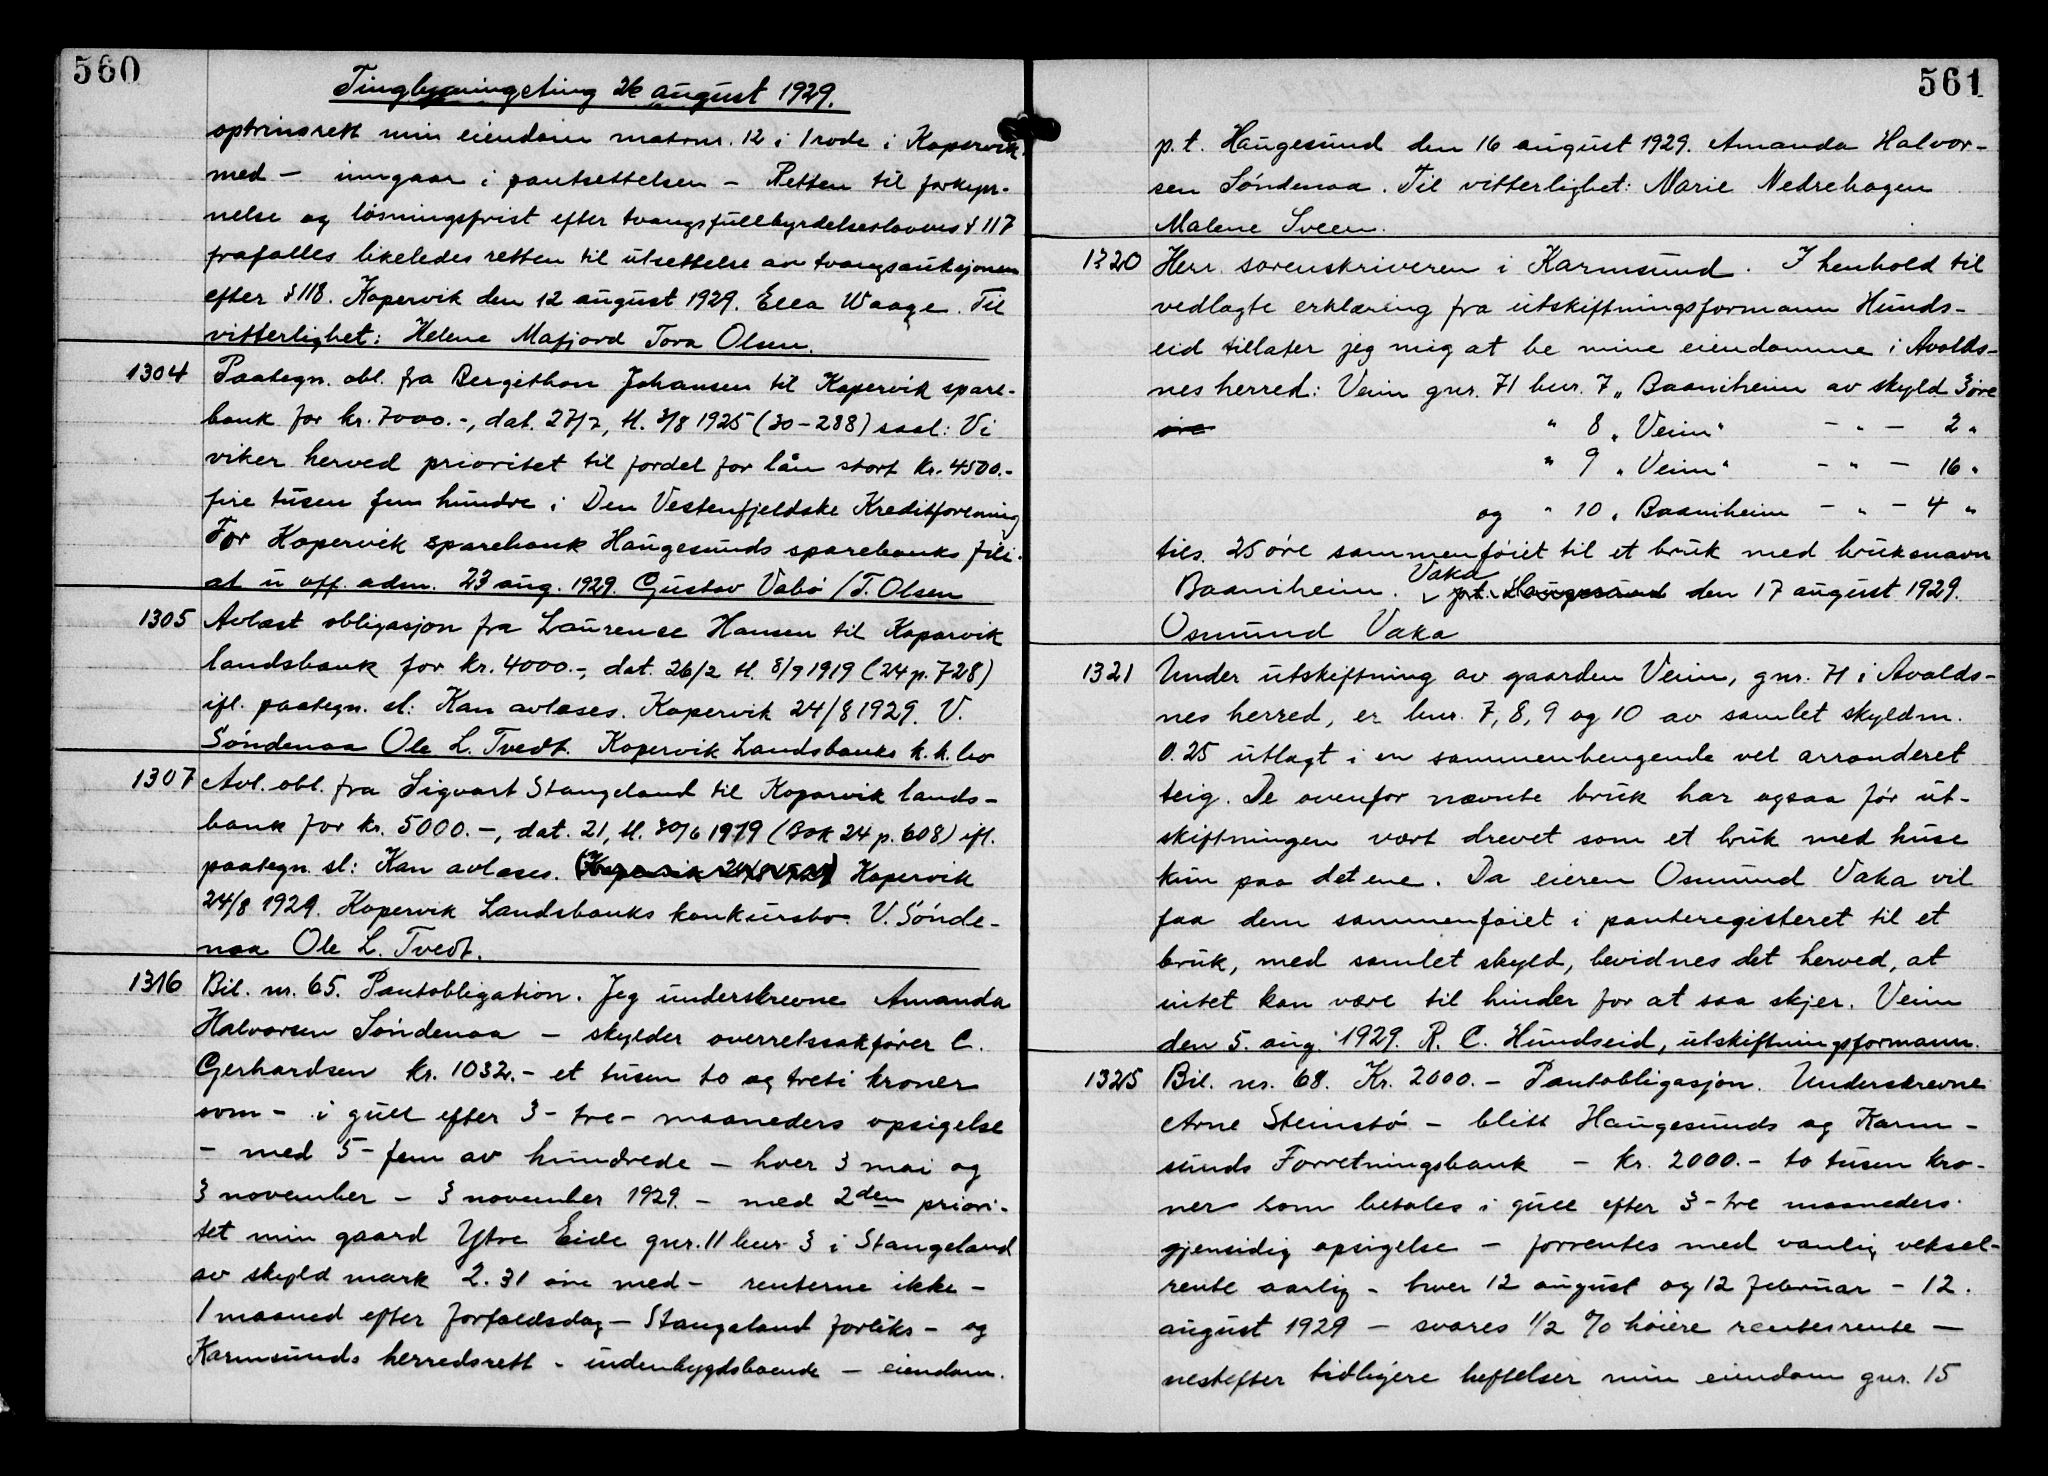 560
Tinglysningsting 26 august 1929.
optrinsrett min eiendom matrnr. 12 i 1 rode i Kopervik
med – inngaar i pantsettelsen – Retten til forkyn-
nelse og løsningsfrist efter tvangsfullbyrdelseslovens § 117
frafalles likeledes retten til utsettelse av tvangsauksjonen
efter § 118. Kopervik den 12 august 1929. Ella Waage. Til
vitterlighet: Helene Mafjord Tora Olsen.
1304 Paategn. obl. fra Bergithon Johansen til Kopervik spare-
bank for kr. 7000.-, dat. 27/7, tl. 3/8 1925 (30-288) saal: Vi
viker herved prioritet til fordel for lån stort kr. 4500.-
fire tusen fem hundre i Den Vestenfjeldske Kreditforening
For Kopervik sparebank Haugesunds sparebanks fili-
al u off. adm. 23 aug. 1929. Gustav Vabø / T. Olsen
1305 Avlæst obligasjon fra Laurense Hansen til Kopervik
landsbank for kr. 4000.-, dat. 26/2 tl. 8/9 1919 (24 p. 728)
ifl. paategn. sl: Kan avlæses. Kopervik 24/8 1929. V.
Søndenaa Ole L. Tvedt. Kopervik Landsbanks k.k. bo
1307 Avl. obl. fra Sigvart Stangeland til Kopervik lands-
bank for kr. 5000.-, dat. 21, tl. 30/6 1919 (Bok 24 p. 608) ifl.
paategn. sl: Kan avlæses. (Kopervik 24/8 1929) Kopervik
24/8 1929. Kopervik Landsbanks konkursbo. V. Sønde-
naa Ole L. Tvedt.
1316 Bil. nr. 65. Pantobligation. Jeg underskrevne Amanda
Halvorsen Søndenaa – skylder overretssakfører C.
Gerhardsen kr. 1032.- et tusen to og treti kroner
som – i gull efter 3 - tre - maaneders opsigelse
– med 5 - fem av hundrede – hver 3 mai og
3 november – 3 november 1929. – med 2den priori-
tet min gaard Ytre Eide gnr. 11 bnr. 3 i Stangeland
av skyld mark 2.31 øre med – renterne ikke –
1 maaned efter forfaldsdag – Stangeland forliks - og
Karmsunds herredsrett - indenbygdsboende – eiendom.
561
p.t. Haugesund den 16 august 1929. Amanda Halvor-
sen Søndenaa. Til vitterlighet: Marie Nedrehagen
Malene Sveen.
1320 Herr sorenskriveren i Karmsund. I henhold til
vedlagte erklæring fra utskiftningsformann Hunds-
eid tillater jeg mig at be mine eiendomme i Avalds-
nes herred: Veim gnr. 71 bnr. 7 „ Baaniheim av skyld 3 øre
øre " 8 „ Veim " – " – 2 "
" 9 „ Veim " – " – 16 "
og " 10 „ Baaniheim – " – 4 "
tils. 25 øre sammenføiet til et bruk med bruksnavn
Baaniheim. Vaka p.t. Haugesund den 17 august 1929.
Osmund Vaka
1321 Under utskiftning av gaarden Veim, gnr. 71 i Avalds-
nes herred, er bnr. 7, 8, 9 og 10 av samlet skyldm.
0.25 utlagt i en sammenhengende vel arronderet
teig. De ovenfor nævnte bruk har ogsaa før ut-
skiftningen vært drevet som et bruk med huse
kun paa det ene. Da eieren Osmund Vaka vil
faa dem sammenføiet i panteregisteret til et
bruk, med samlet skyld, bevidnes det herved, at
intet kan være til hinder for at saa skjer. Veim
den 5. aug. 1929. R. C. Hundseid, utskiftningsformann.
1325 Bil. nr. 68. Kr. 2000.- Pantobligasjon. Underskrevne
Arne Steinstø – blitt Haugesunds og Karm-
sunds Forretningsbank – kr. 2000.- to tusen kro-
ner som betales i gull efter 3 - tre maaneders
gjensidig opsigelse – forrentes med vanlig veksel-
rente aarlig – hver 12 august og 12 februar – 12.
august 1929 – svares 1/2 % høiere rentesrente –
nestefter tidligere heftelser min eiendom gnr. 15